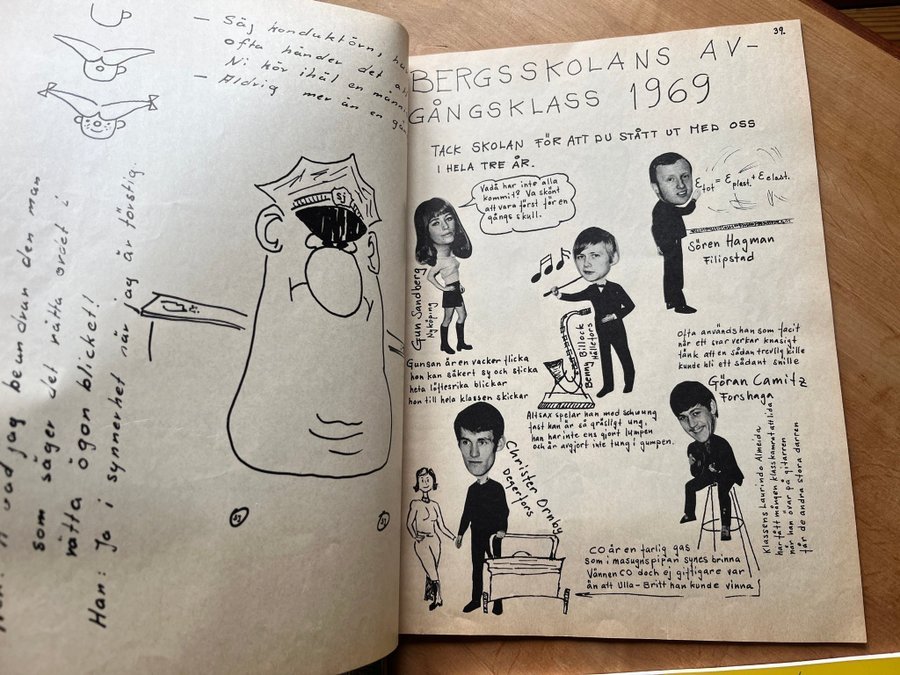 – Säg konduktörn, ha
ofta händer det at
Ni kör ihäl en männi
– Aldrig mer än en gån
vad jag beundrar den man
som säger det rätta ordet i
rätta ögonblicket!
Han: Ja i synnerhet när jag är förstig.
SJ
SJ
SJ
39.
BERGSSKOLANS AV-
GÅNGSKLASS 1969
TACK SKOLAN FÖR ATT DU STÅTT UT MED OSS
I HELA TRE ÅR.
Vadå har inte alla
kommit? Va skönt
att vara först för en
gångs skull.
Gun Sandberg
Nyköping
Gunsan är en vacker flicka
hon kan säkert sy och sticka
heta löftesrika blickar
hon till hela klassen skickar
Benny Billock
Hällefors
Altsax spelar han med schwung
fast han är så gräsligt ung,
han har inte ens gjort lumpen
och är avgjort inte tung i gumpen.
Ɛtot = Ɛplast. + Ɛelast.
Sören Hagman
Filipstad
Ofta används han som facit
när ett svar verkar knasigt
tänk att en sådan trevlig kille
kunde bli ett sådant snille
Göran Camitz
Forshaga
Klassens Laurindo Almeida
har fått mången klasskamrat att lida
när han övar på gitarren
får de andra stora darren
Christer Ornby
Degerfors
CO är en farlig gas
som i masugnspipan synes brinna
Vännen CO doch ej giftigare var
än att Ulla-Britt han kunde vinna